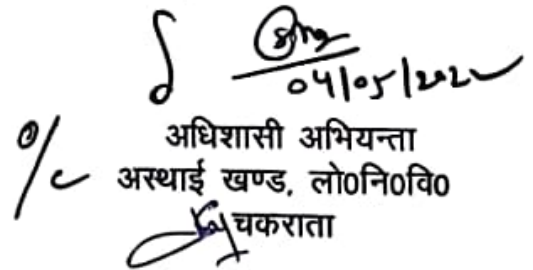 04/05/2022
अधिशासी अभियन्ता
o/c अस्थाई खण्ड, लो०नि०वि०
चकराता